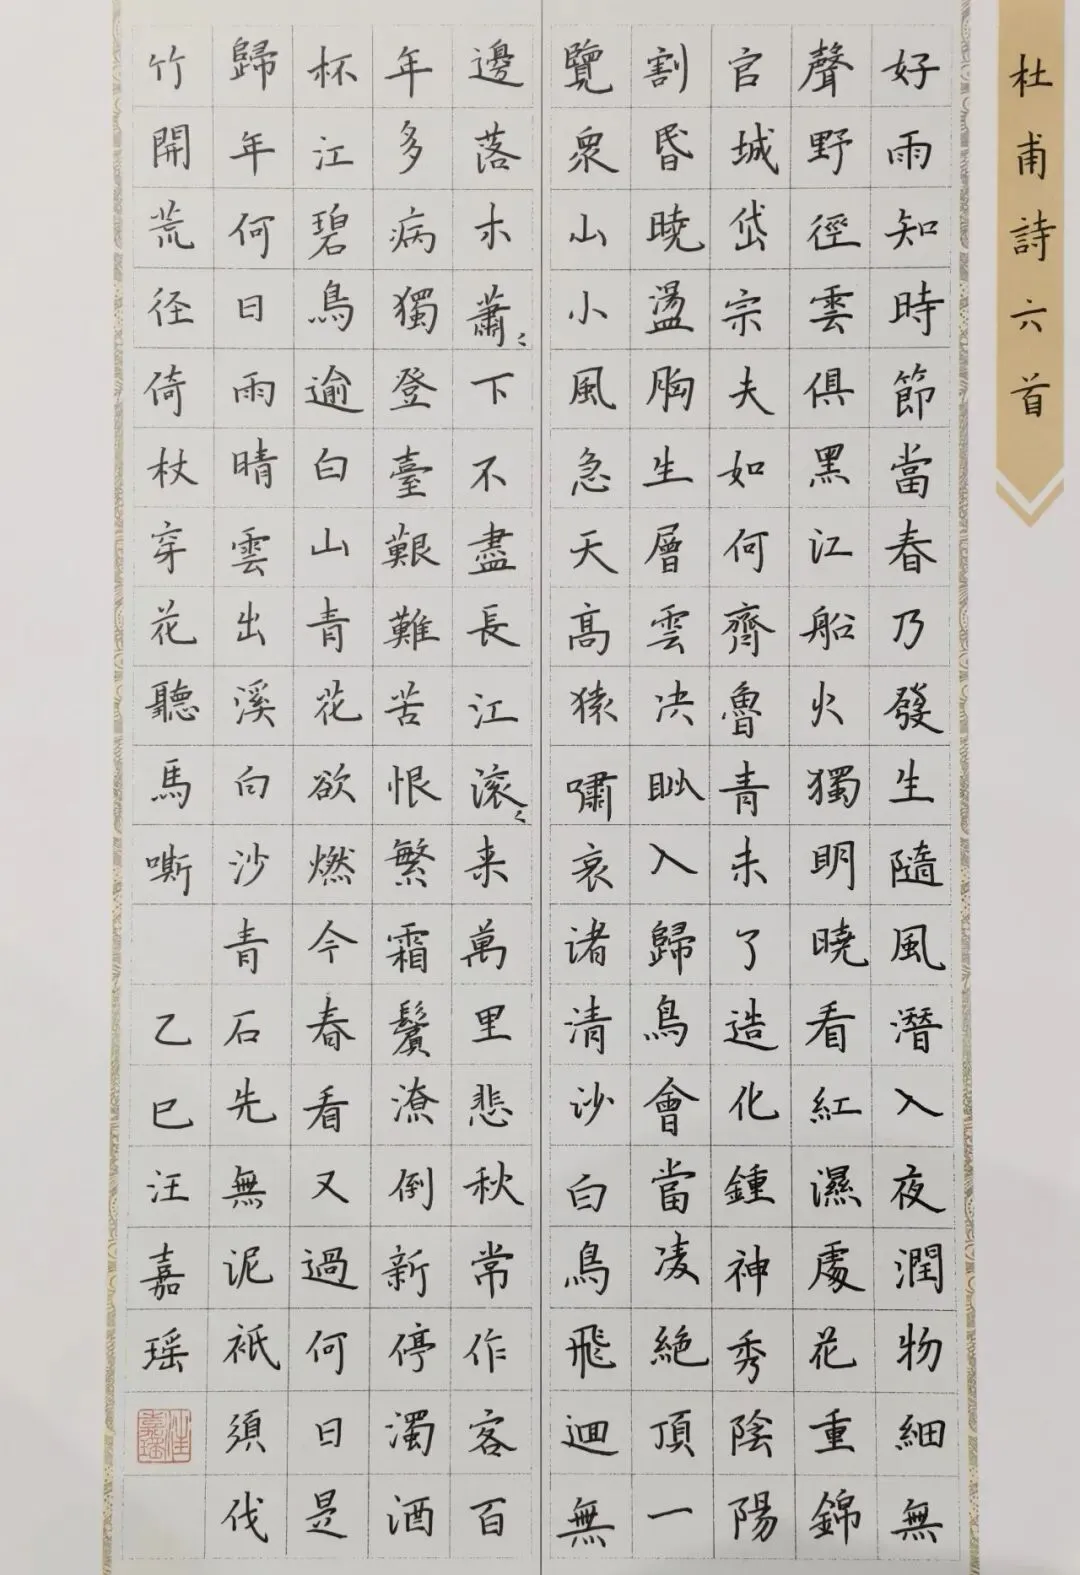 杜甫詩六首
好雨知時節當春乃發生隨風潛入夜潤物細無
聲野徑雲俱黑江船火獨明曉看紅濕處花重錦
官城岱宗夫如何齊魯青未了造化鍾神秀陰陽
割昏曉盪胸生層雲决眦入歸鳥會當凌絕頂一
覽衆山小風急天高猿嘯哀渚清沙白鳥飛迴無
邊落木蕭〻下不盡長江滚〻来萬里悲秋常作客百
年多病獨登臺艱難苦恨繁霜鬢潦倒新停濁酒
杯江碧鳥逾白山青花欲燃今春看又過何日是
歸年何日雨晴雲出溪白沙青石先無泥祇須伐
竹開荒径倚杖穿花聽馬嘶 乙巳汪嘉瑶
汪嘉瑶